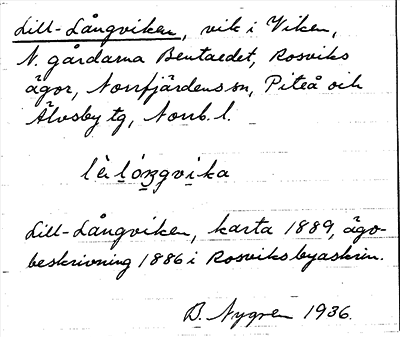 Lill-Långviken, vik i Viken,
N. gårdarna Bentaedet, Rosviks
ägor, Norrfjärdens sn, Piteå och
Älvsby tg, Norrb. l.
Lill-Långviken, karta 1889, ägo-
beskrivning 1886 i Rosviks byaskrin.
B. Nygren 1936.